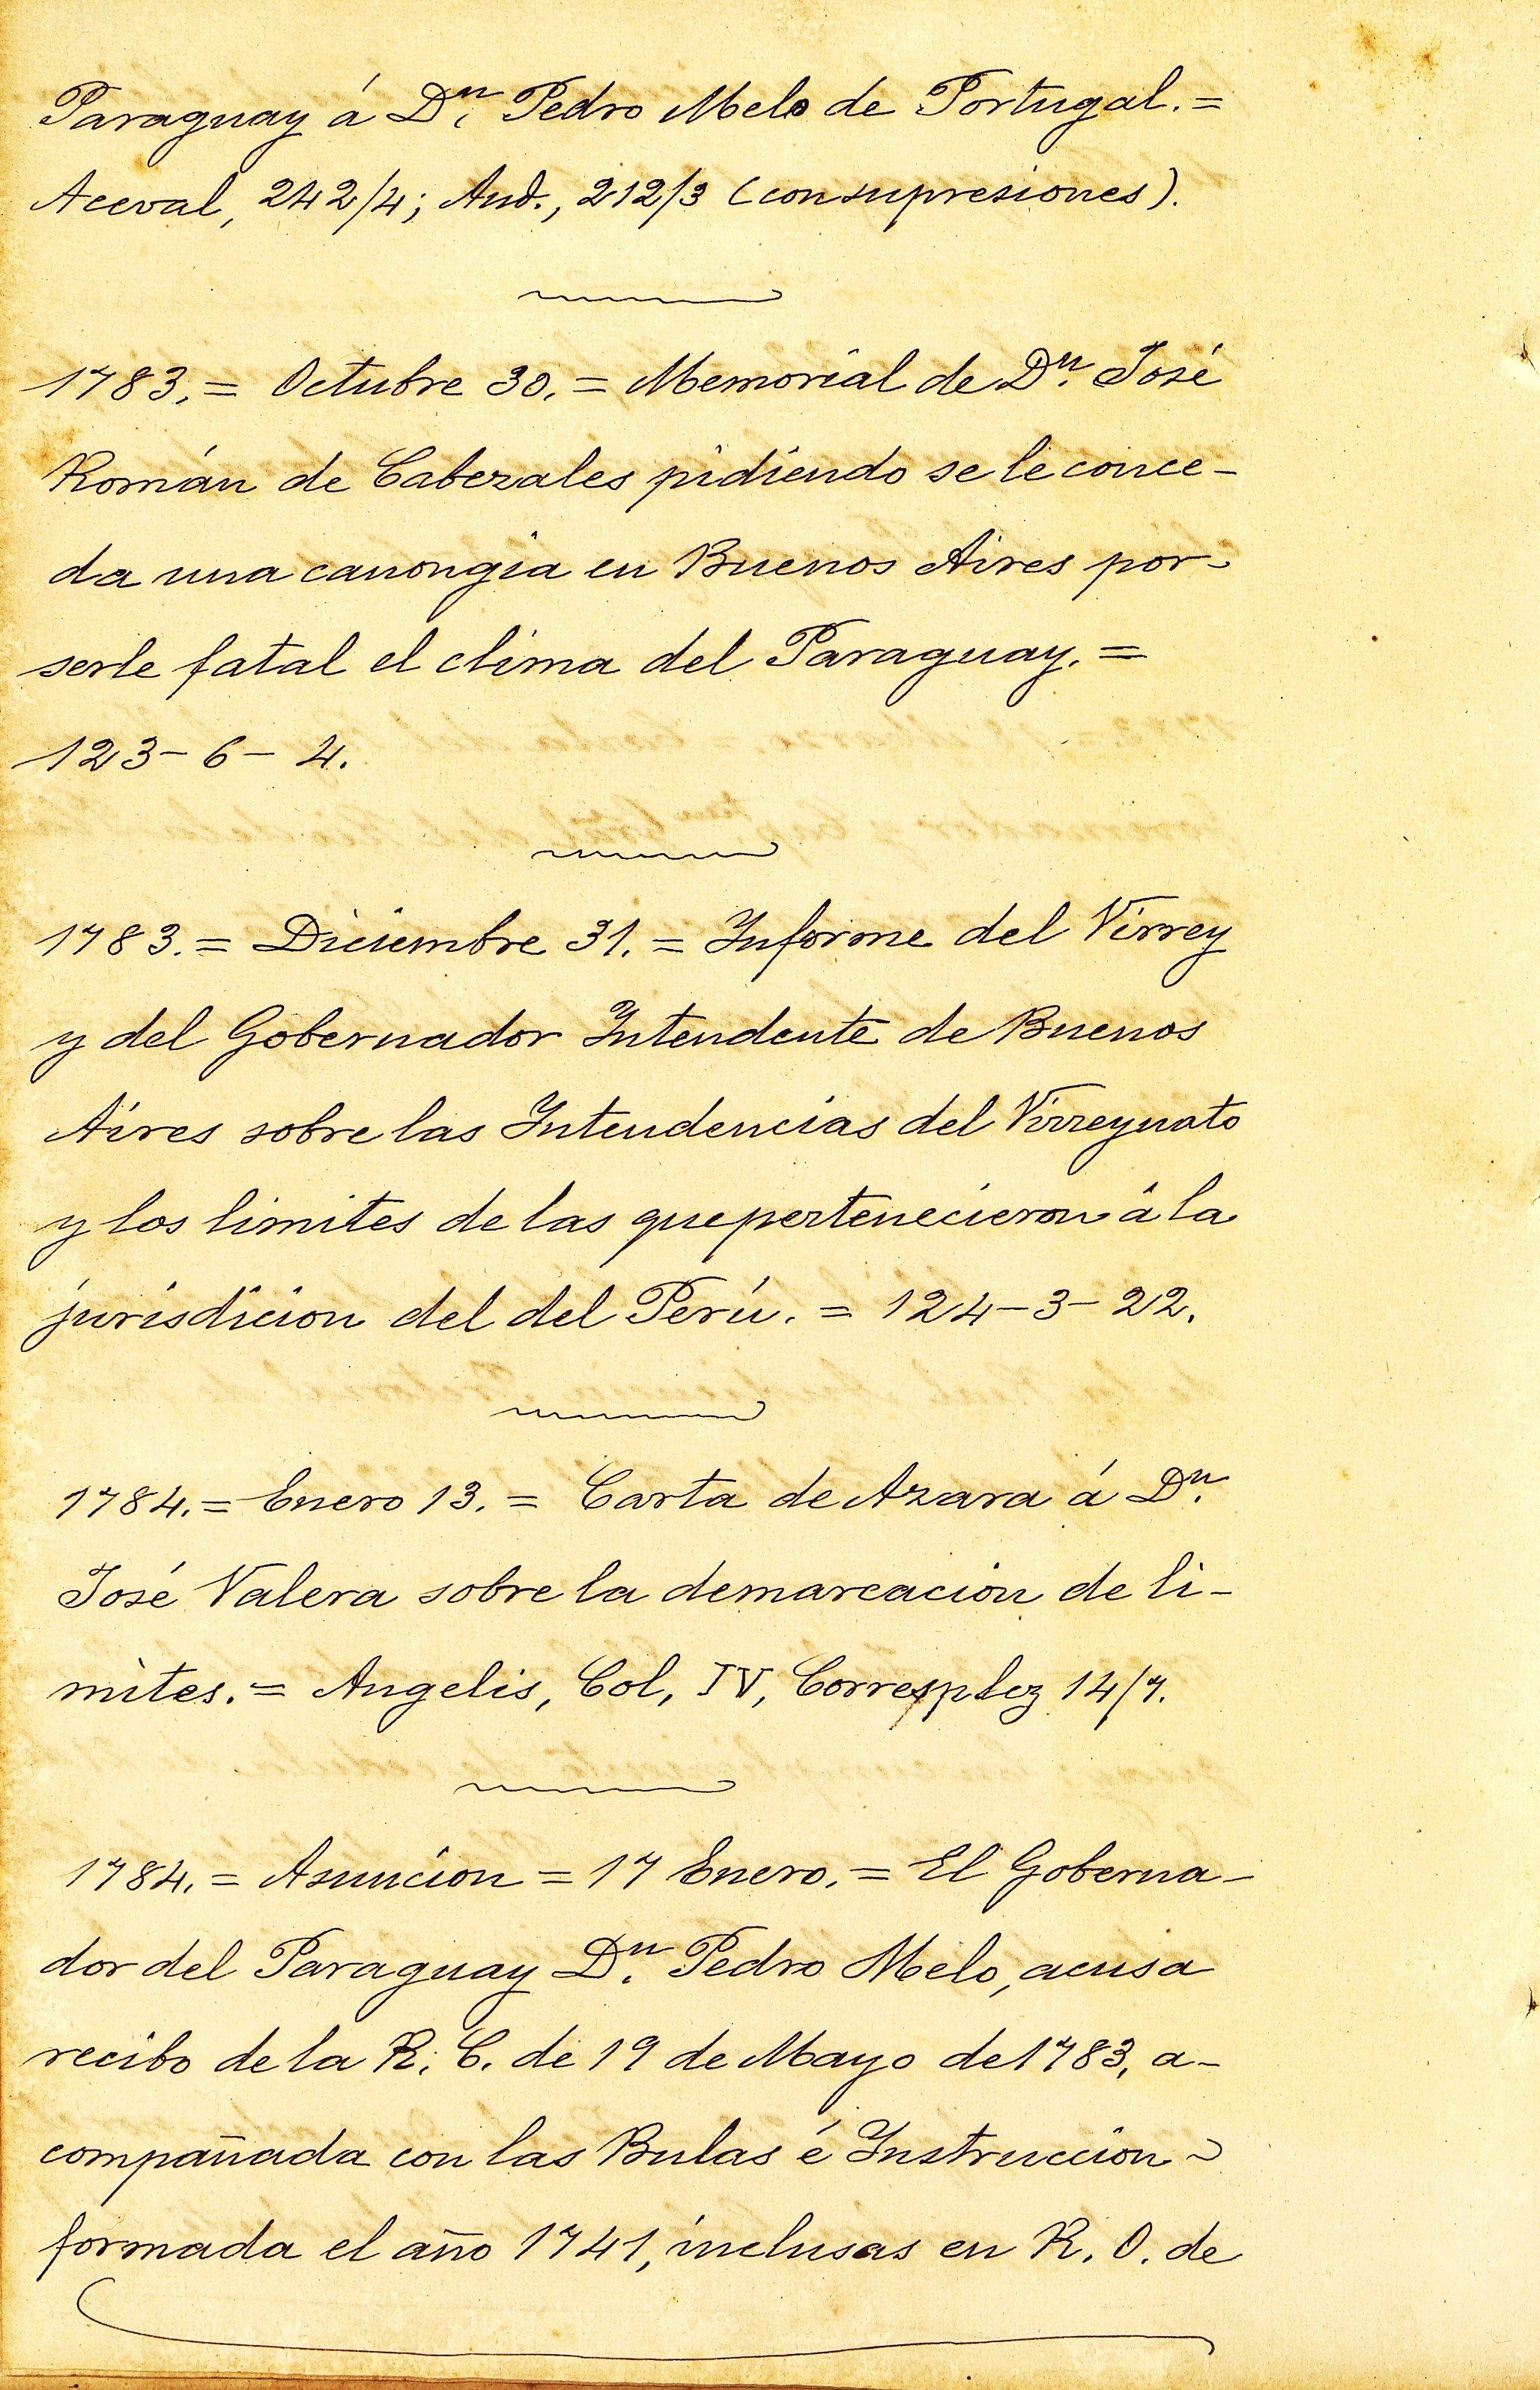 Paraguay á Dⁿ. Pedro Melo de Portugal. =
Aceval, 242/4; Aud., 212/3 (con supresiones).
1783. = Octubre 30. = Memorial de Dⁿ. José
Román de Cabezales pidiendo se le conce-
da una canongia en Buenos Aires por-
serle fatal el clima del Paraguay. =
123 - 6 - 4.
1783. = Diciembre 31. = Informe del Virrey
y del Gobernador Intendente de Buenos
Aires sobre las Intendencias del Virreynato
y los limites de las que pertenecieron á la
jurisdicion del del Perú. = 124 - 3 - 22.
1784. = Enero 13. = Carta de Azara á Dⁿ.
José Valera sobre la demarcacion de li-
mites. = Angelis, Col, IV, 14/7.
1784. = Asuncion = 17 Enero. = El Goberna-
dor del Paraguay Dⁿ. Pedro Melo, acusa
recibo de la R. C. de 19 de Mayo de 1783, a-
compañada con las Bulas é Instruccion
formada el año 1741, inclusas en R. O. de